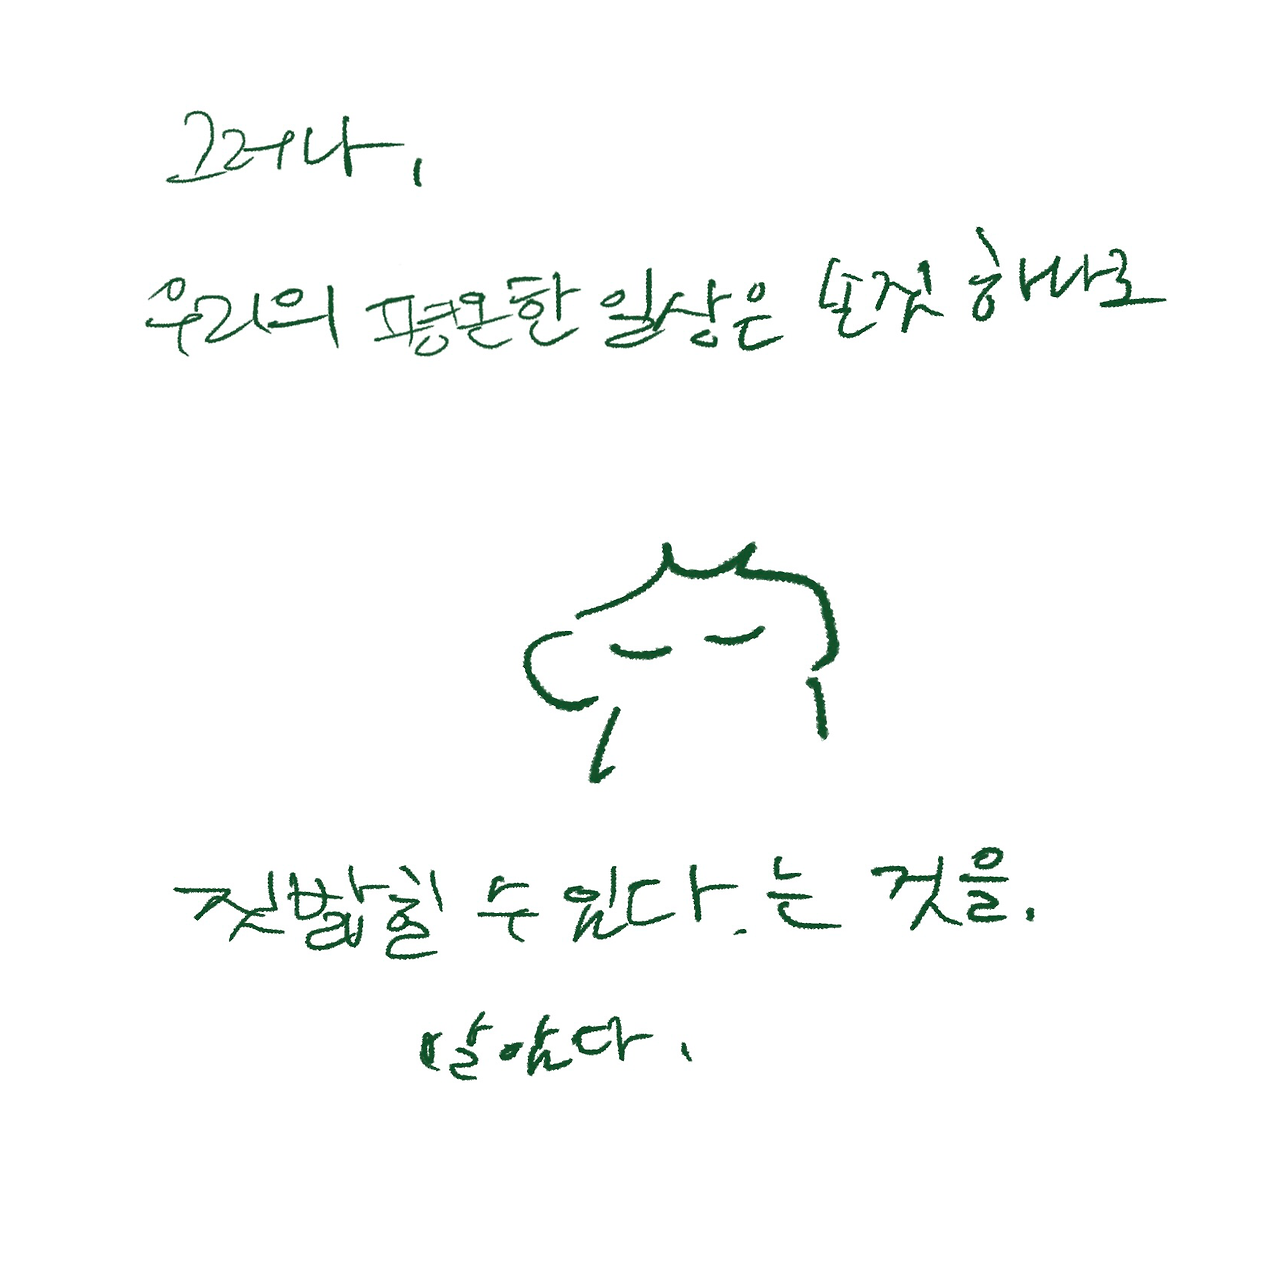 그러나,
우리의 평온한 일상은 또한 하나로
짓밟힐 수 있다.는 것을.
알았다.